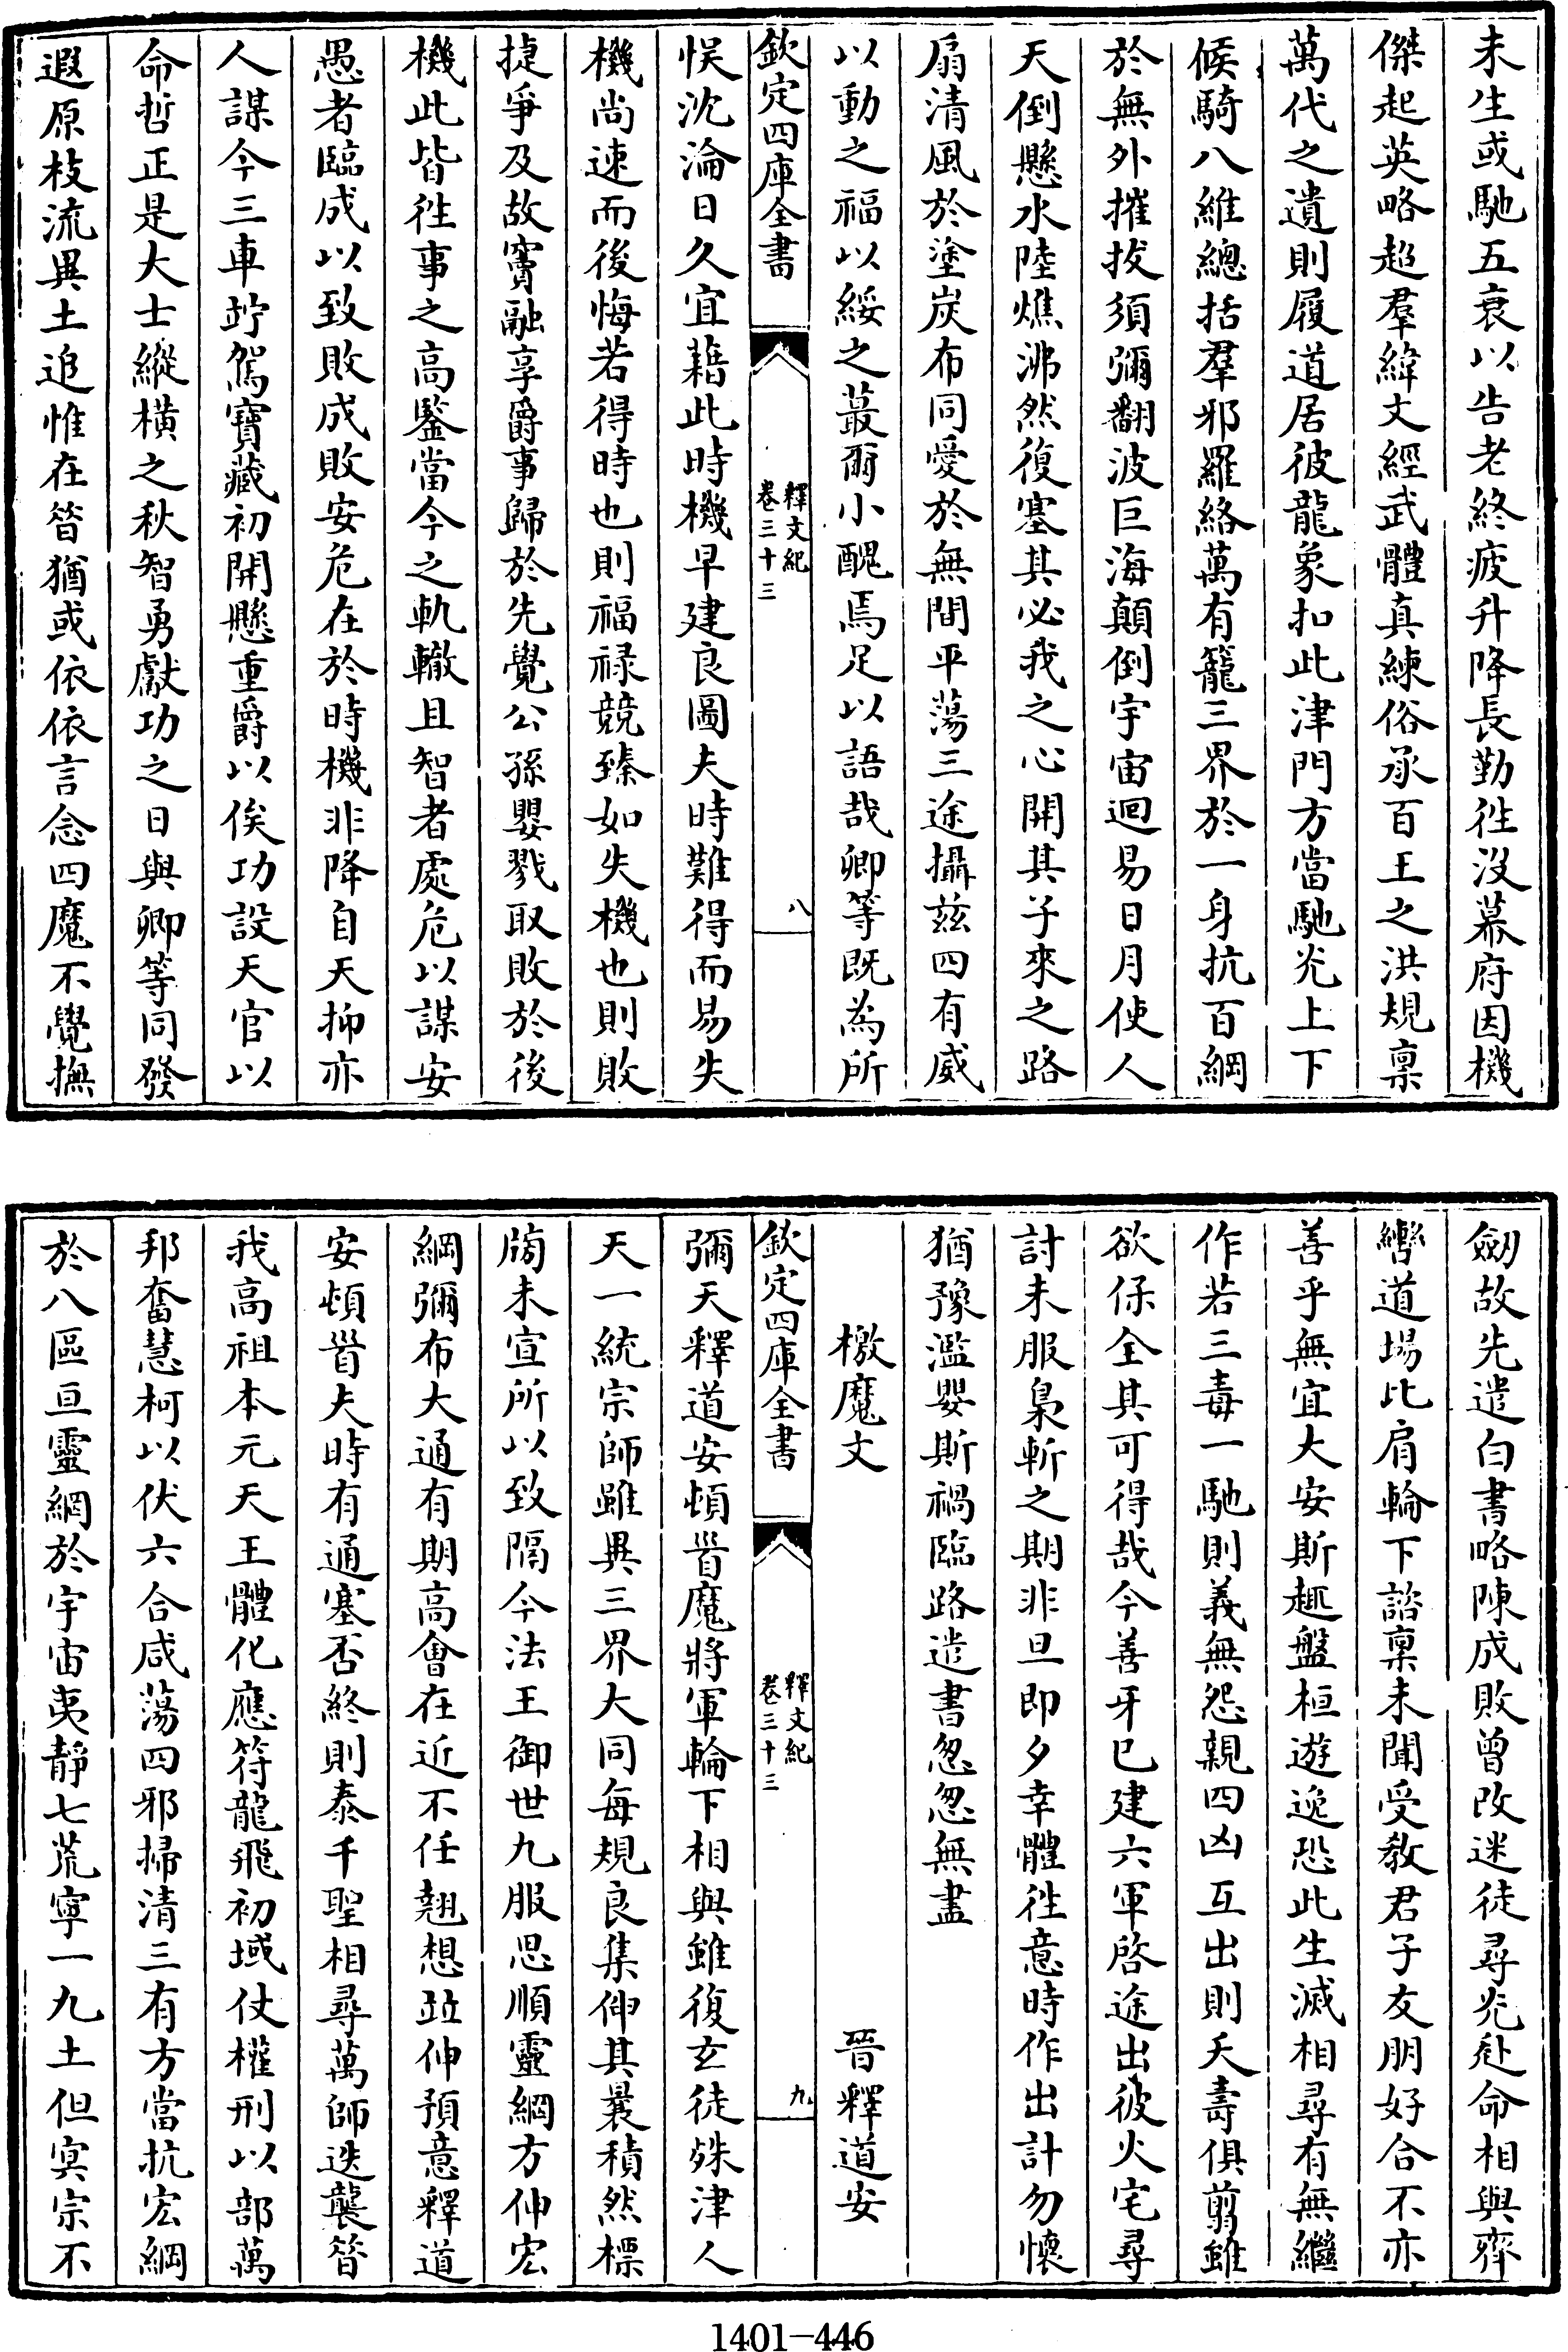 未生或馳五衰以告老終疲升降長勤徃沒幕府因機
傑起英略超羣緯文經武體真練俗承百王之洪規稟
萬代之遺則履道居彼龍象扣此津門方當馳光上下
候騎八維總括羣邪羅絡萬有籠三界於一身抗百綱
於無外摧拔須彌翻波巨海顛倒宇宙迴易日月使人
天倒懸水陸燋沸然復塞其必我之心開其子來之路
扇清風於塗炭布同愛於無間平蕩三途攝兹四有威
以動之福以綏之蕞爾小醜焉足以語哉卿等既為所
欽定四庫全書
釋文紀
卷三十三
八
悮沈淪日久宜藉此時機早建良圖夫時難得而易失
機尚速而後悔若得時也則福禄競臻如失機也則敗
捷爭及故竇融享爵事歸於先覺公孫嬰戮取敗於後
機此皆徃事之高鑒當今之軌轍且智者處危以謀安
愚者臨成以致敗成敗安危在於時機非降自天抑亦
人謀今三車竚駕寶藏初開懸重爵以俟功設天官以
命哲正是大士縱橫之秋智勇獻功之日與卿等同發
遐原枝流異土追惟在昝猶或依依言念四魔不覺撫
劒故先遣白書略陳成敗曾改迷徒尋光赴命相與齊
轡道場比肩輪下諮稟未聞受教君子友朋好合不亦
善乎無宜大安斯趣盤桓遊逸恐此生滅相尋有無繼
作若三毒一馳則義無怨親四凶互出則夭壽俱剪雖
欲保全其可得哉今善牙已建六軍啓途出彼火宅尋
討未服梟斬之期非旦即夕幸體徃意時作出計勿懷
猶豫濫嬰斯禍臨路遣書怱怱無盡
檄魔文
晉釋道安
欽定四庫全書
釋文紀
卷三十三
九
彌天釋道安頓首魔將軍輪下相與雖復玄徒殊津人
天一統宗師雖異三界大同每規良集伸其曩積然標
牓未宣所以致隔今法王御世九服思順靈綱方伸宏
綱彌布大通有期高會在近不任翹想並伸預意釋道
安頓首夫時有通塞否終則泰千聖相尋萬師迭襲昝
我高祖本元天王體化應符龍飛初域仗權刑以部萬
邦奮慧柯以伏六合咸蕩四邪掃清三有方當抗宏綱
於八區亘靈網於宇宙夷靜七荒寧一九土但㝠宗不
1401-446